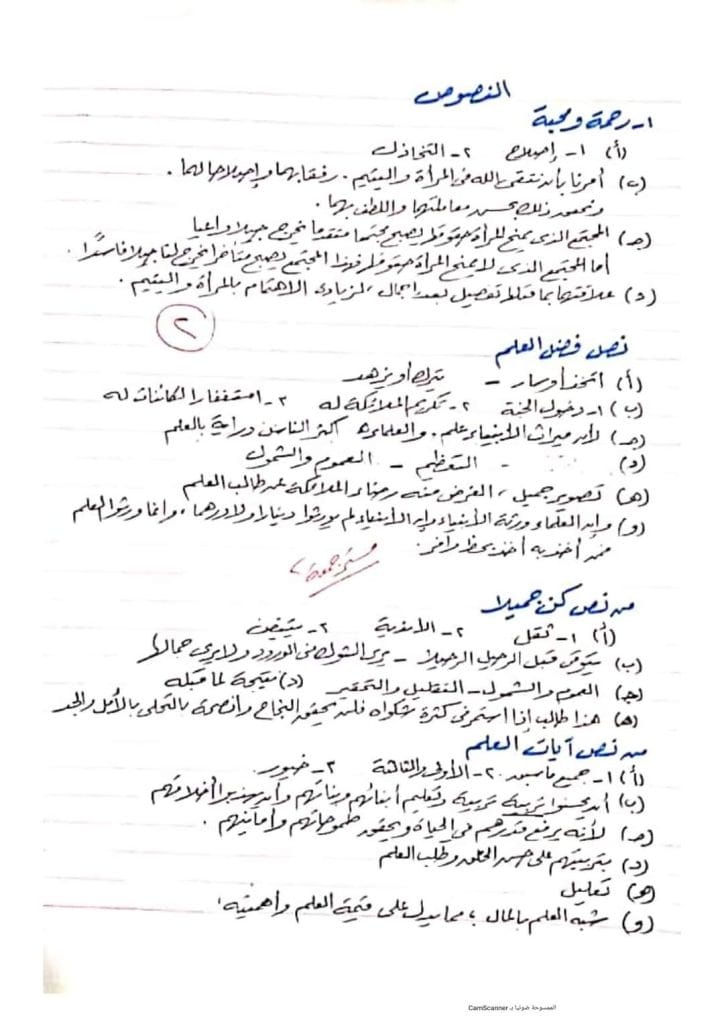 النصوص
١- رحمة ومحبة
(أ) ١- إصلاح ٢- التخاذل
(ب) أمرنا بأن نتقى الله فى المرأة واليتيم . رفقا بهما وإصلاحا لهما .
ونحقق ذلك بحسن معاملتهما واللطف بهما .
(جـ) المجتمع الذى يمنح المرأة حقوقها يصبح مجتمعا متقدما يخرج جيلا واعيا
أما المجتمع الذى لا يمنح المرأة حقوقها فهذا المجتمع يصبح متأخرا يخرج لنا جيلا فاسدًا .
(د) علاقتها بما قبلها تفصيل بعد إجمال ، لزيادة الاهتمام بالمرأة واليتيم .
٢
نص فضل العلم
(أ) اتخذ أو سار - يترك أو يزهد
(ب) ١- دخول الجنة ٢- تكريم الملائكة له ٣- استغفار الكائنات له
(جـ) لأن ميراث الأنبياء علم . والعلماء أكثر الناس دراية بالعلم
(د) - التعظيم - العموم والشمول
(هـ) تصوير جميل ، الغرض منه رضاء الملائكة عن طالب العلم
(و) وإن العلماء ورثة الأنبياء وإن الأنبياء لم يورثوا دينارا ولا درهما ، وإنما ورثوا العلم
فمن أخذ به أخذ بحظ وافر .
من نص كن جميلا
(أ) ١- ثقل ٢- الأندية ٣- يتيقن
(ب) يتوقى قبل الرحيل الرحيلا - يرى الشوك فى الورود ولا يرى جمالها
(جـ) العموم والشمول - التقليل والتحقير (د) نتيجة لما قبله
(هـ) هذا طالب إذا استمر فى كثرة شكواه فلن يحقق النجاح وأنصحه بالتحلى بالأمل والجد
من نص آيات العلم
(أ) ١- جميع ما سبق . ٢- الأولى والثالثة ٣- خيور .
(ب) أن يحسنوا تربية وتعليم أبنائهم وبناتهم وأن يهذبوا أخلاقهم
(جـ) لأنه يرفع قدرهم فى الحياة ويحقق طموحاتهم وأمانيهم .
(د) بتربيتهم على حسن الخلق وطلب العلم
(هـ) تعليل
(و) شبه العلم بالمال ، مما يدل على قيمة العلم وأهميته .
الممسوحة ضوئيا بـ CamScanner